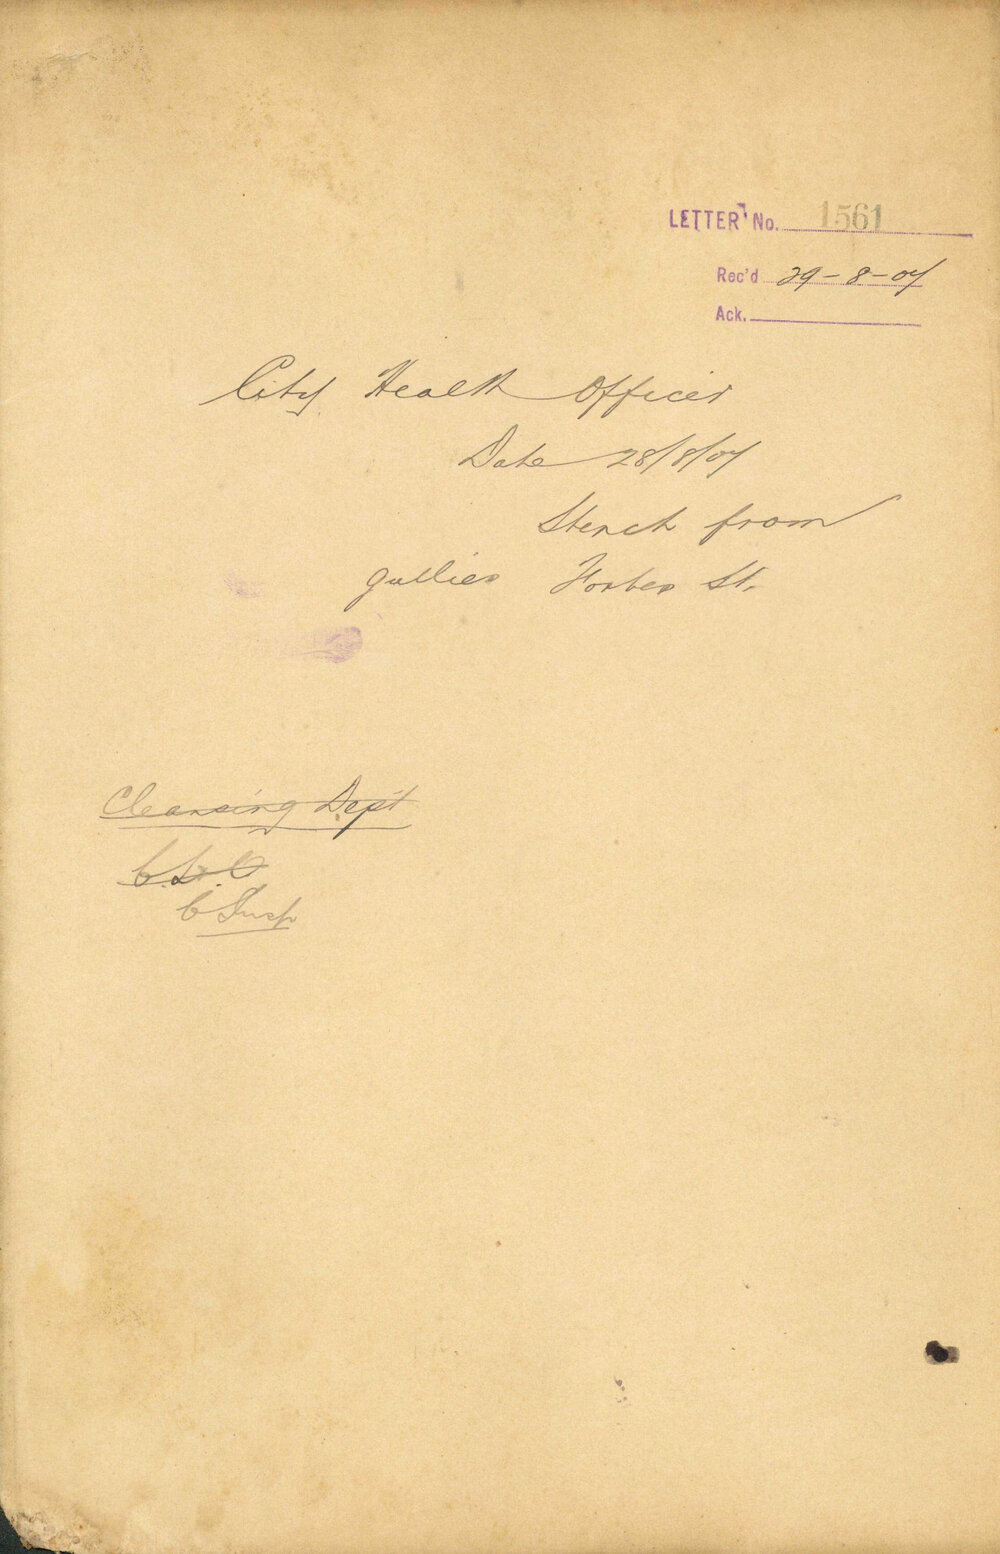 LETTER No. 1561
Rec'd 29-8-07
Ack.
City Health Officer
Date 28/8/07
Stench from
gullies Forbes St.
Cleansing Dept
C. Insp